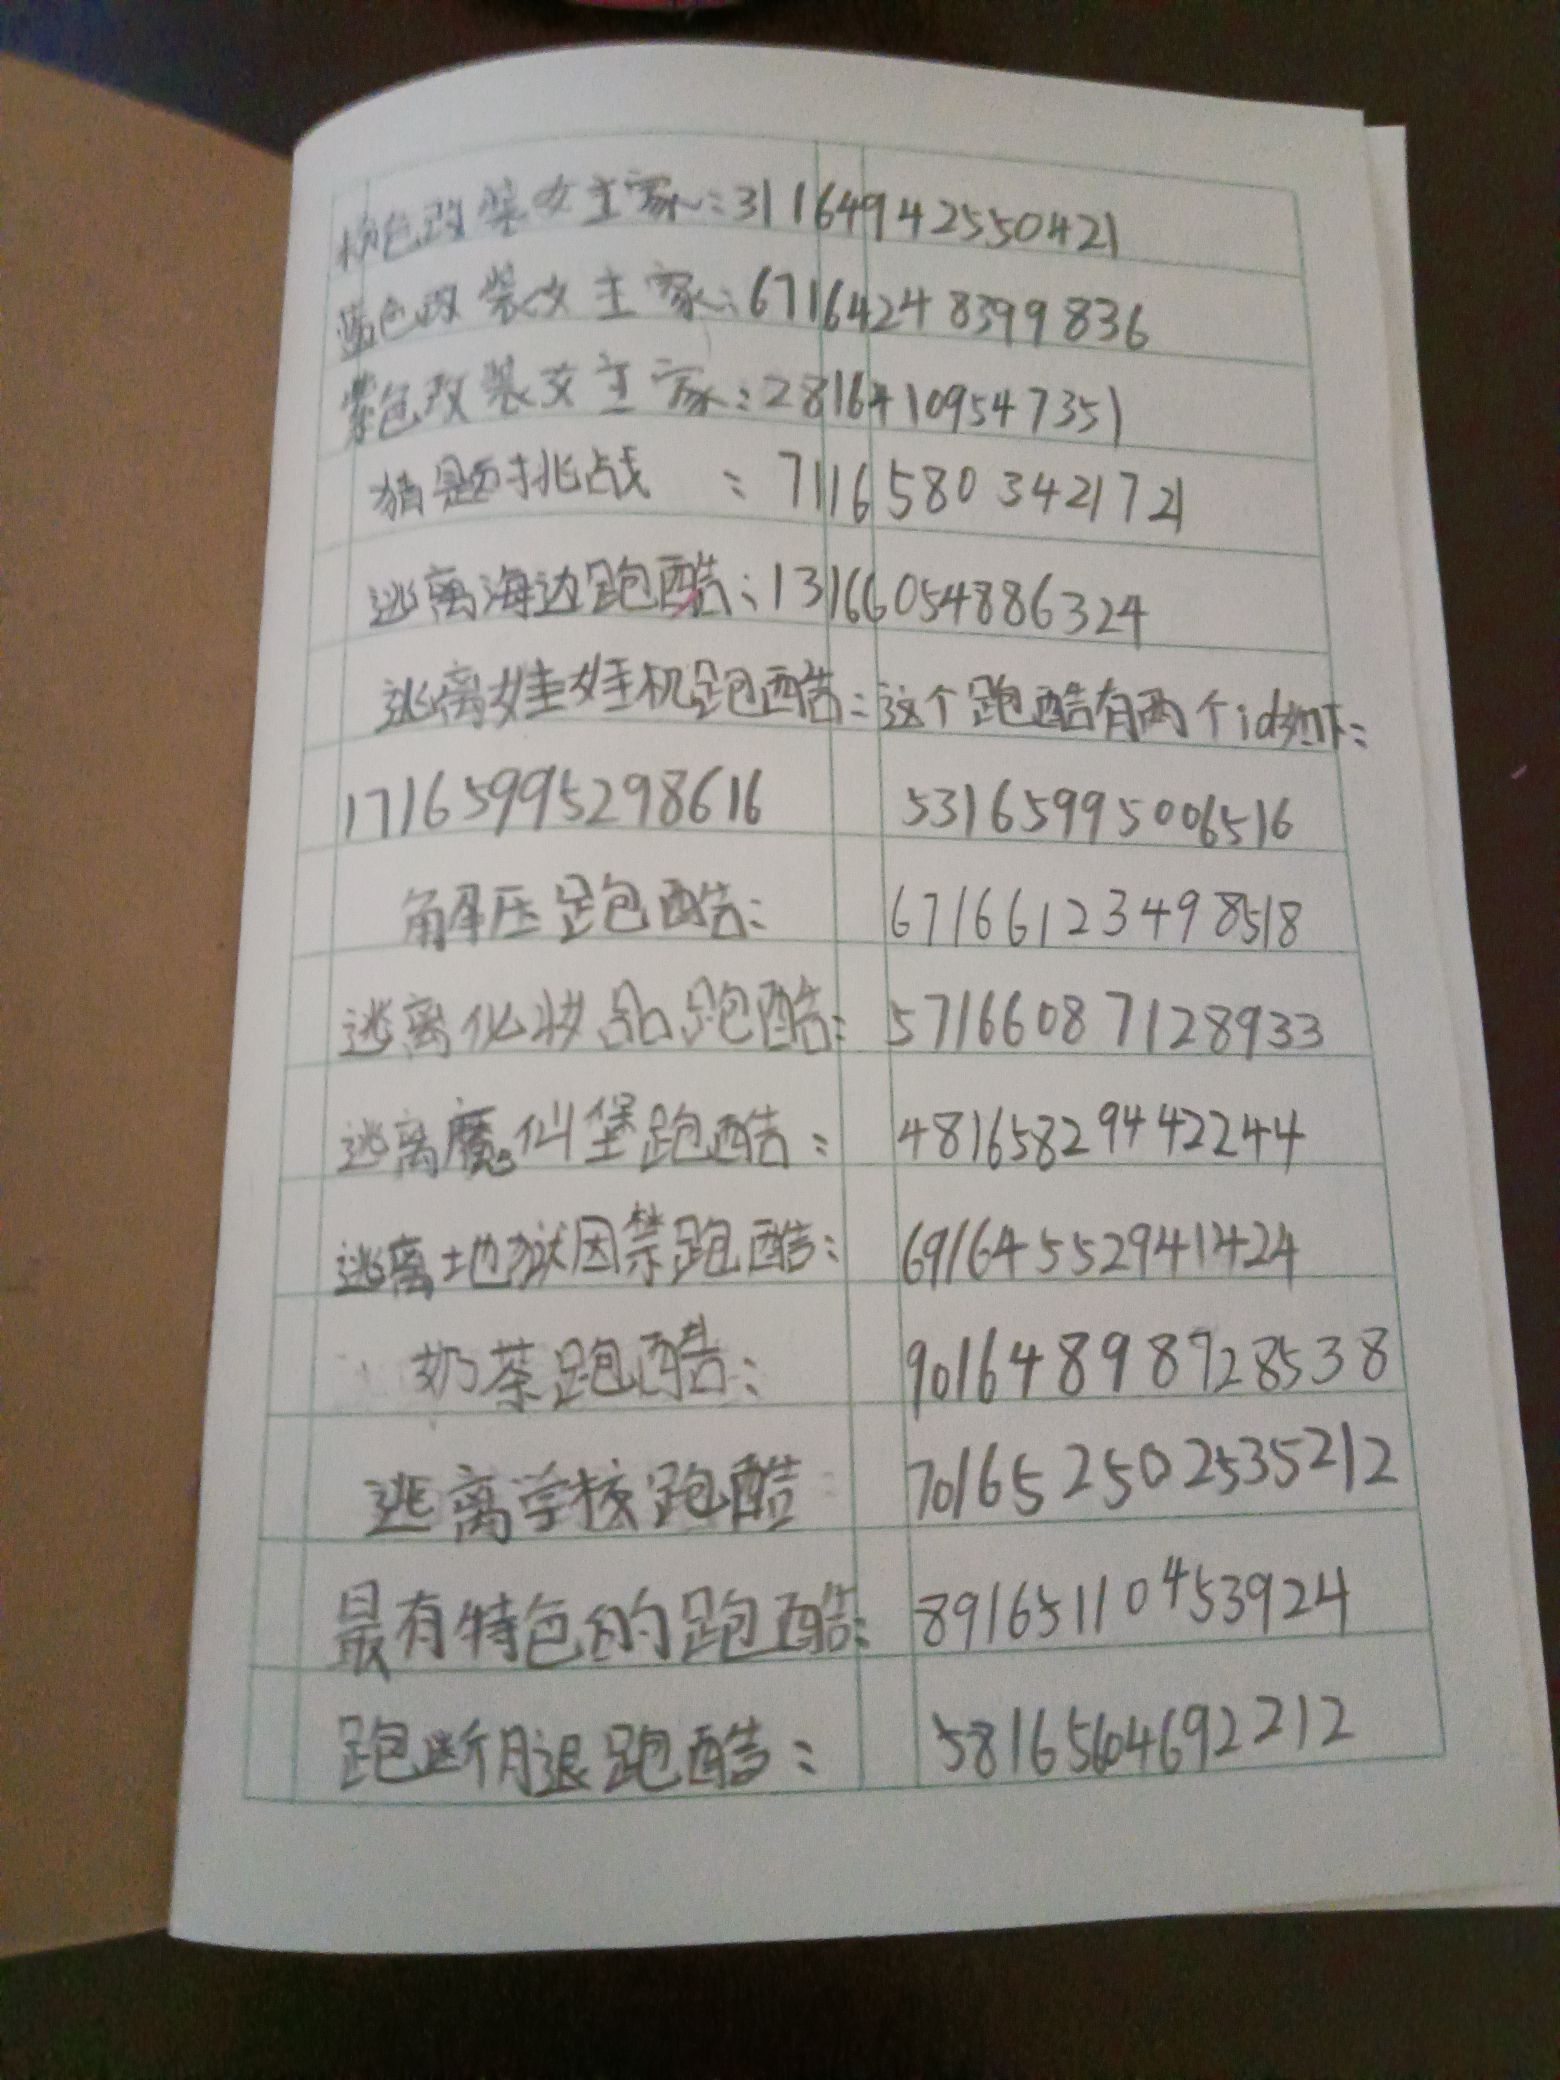 粉色改装女主家：311649425550421
蓝色改装女主家：671642483998 36
紫色改装女主家：28164109547351
猜题对挑战：711658034217 21
逃离海边跑酷：131660548863 24
逃离娃娃机跑酷：这个跑酷有两个id如下：
171659995298616 531659995006516
解压跑酷：671661234985 18
逃离化妆品跑酷：571660871289 33
逃离魔仙堡跑酷：481658294422 44
逃离地狱囚禁跑酷：691645529414 24
奶茶跑酷：901648987285 38
逃离学校跑酷 701652502535212
最有特色的跑酷：891651104539 24
跑断腿跑酷：581656046922 12